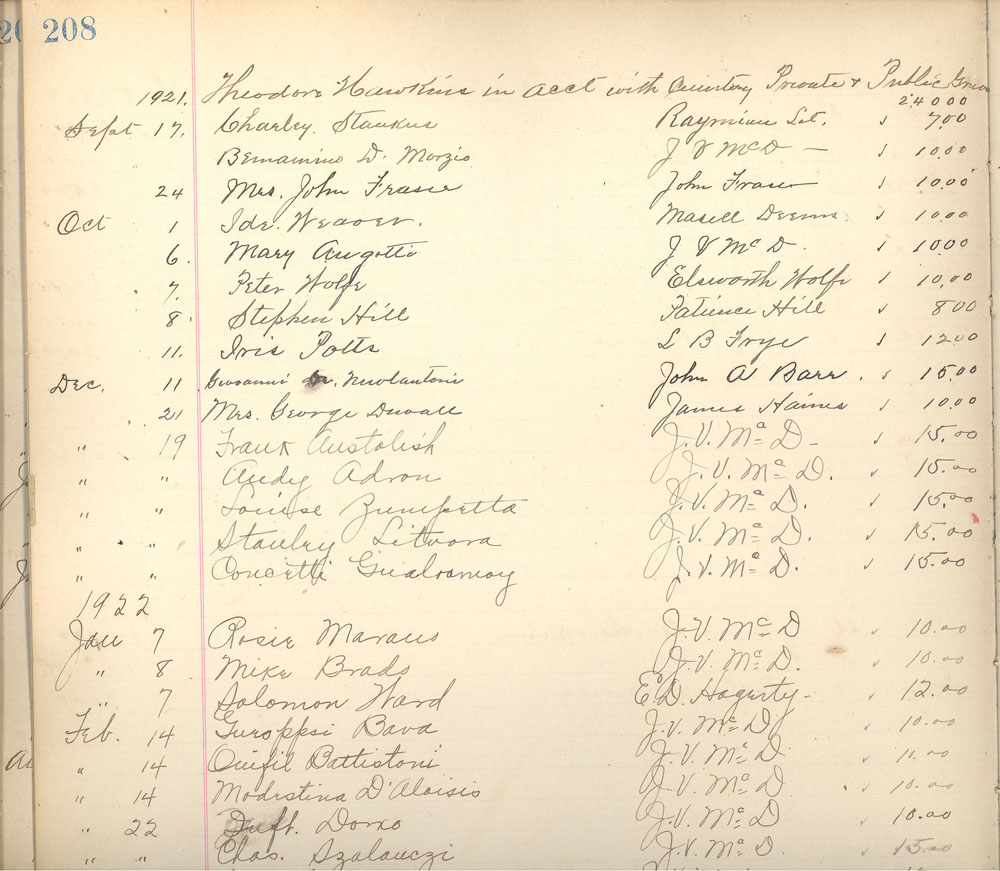 208
1921. Theodore Hawkins in acct with Cemetery Private & Public
240 00
Sept 17. Charley Stankus Raymian Lit. 7.00
D. Morzio J V McD — 10.00
24 Mrs. John Frasie John Fraser 10.00
Oct 1 Ida Weaver. Masell Deems. 10.00
6. Mary Augotti J V McD. 10.00
7. Peter Wolfe Elsworth Wolfe 10.00
8. Stephen Hill Patience Hill 8.00
11. Iris Potts L B Frye 12.00
Dec. 11 John A Barr. 15.00
21 Mrs. George Duvall James Haines 10.00
" 19 Frank Austolish J.V. McD- 15.00
" " Andy Adron J.V. McD. 15.00
" " Louise Zumpetta J.V. McD. 15.00
" " Stanley Litvora J.V. McD. 15.00
" " Concetti J.V. McD. 15.00
1922
Jan 7 Rosie Marano J.V. McD 10.00
" 8 Mike Brado J.V. McD. 10.00
" 7 Solomon Ward E.D. Hagerty- 12.00
Feb. 14 Guroppsi Bava J.V. McD 10.00
" 14 Battistoni J.V. McD 10.00
" 14 Modestina D'Aloisio J.V. McD 10.00
" 22 Domo J.V. McD 10.00
" " Chas. Szalauczi J.V. McD. 15.00